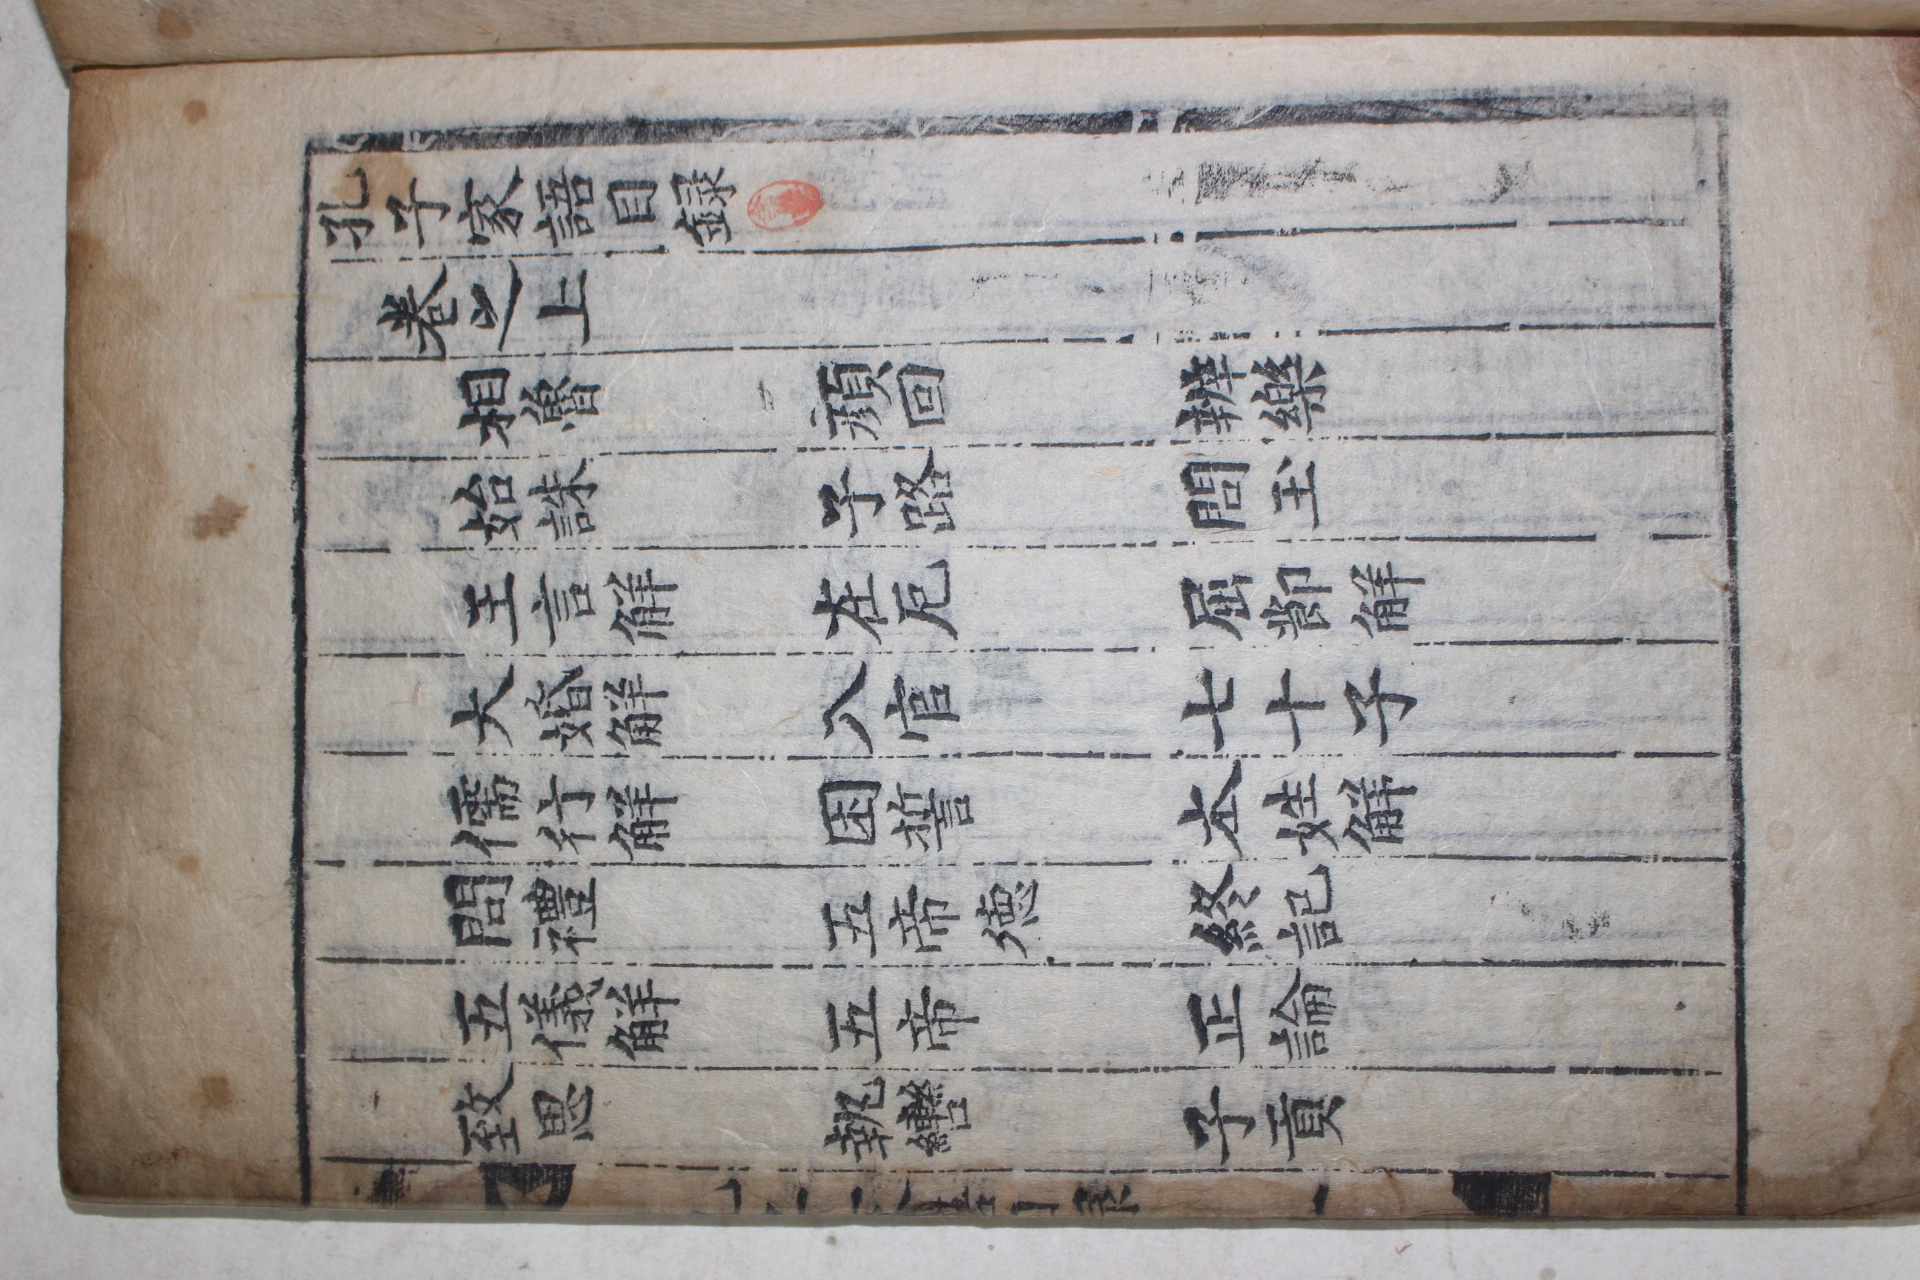 孔子家語目錄
卷之上
相魯 顔回 辨樂
始誅 子路 問玉
王言解 在厄 屈節解
大婚解 八官 七十子
儒行解 困誓 夲姓解
問禮 五帝徳 終記
五儀解 五帝 正論
致思 執轡 子貢